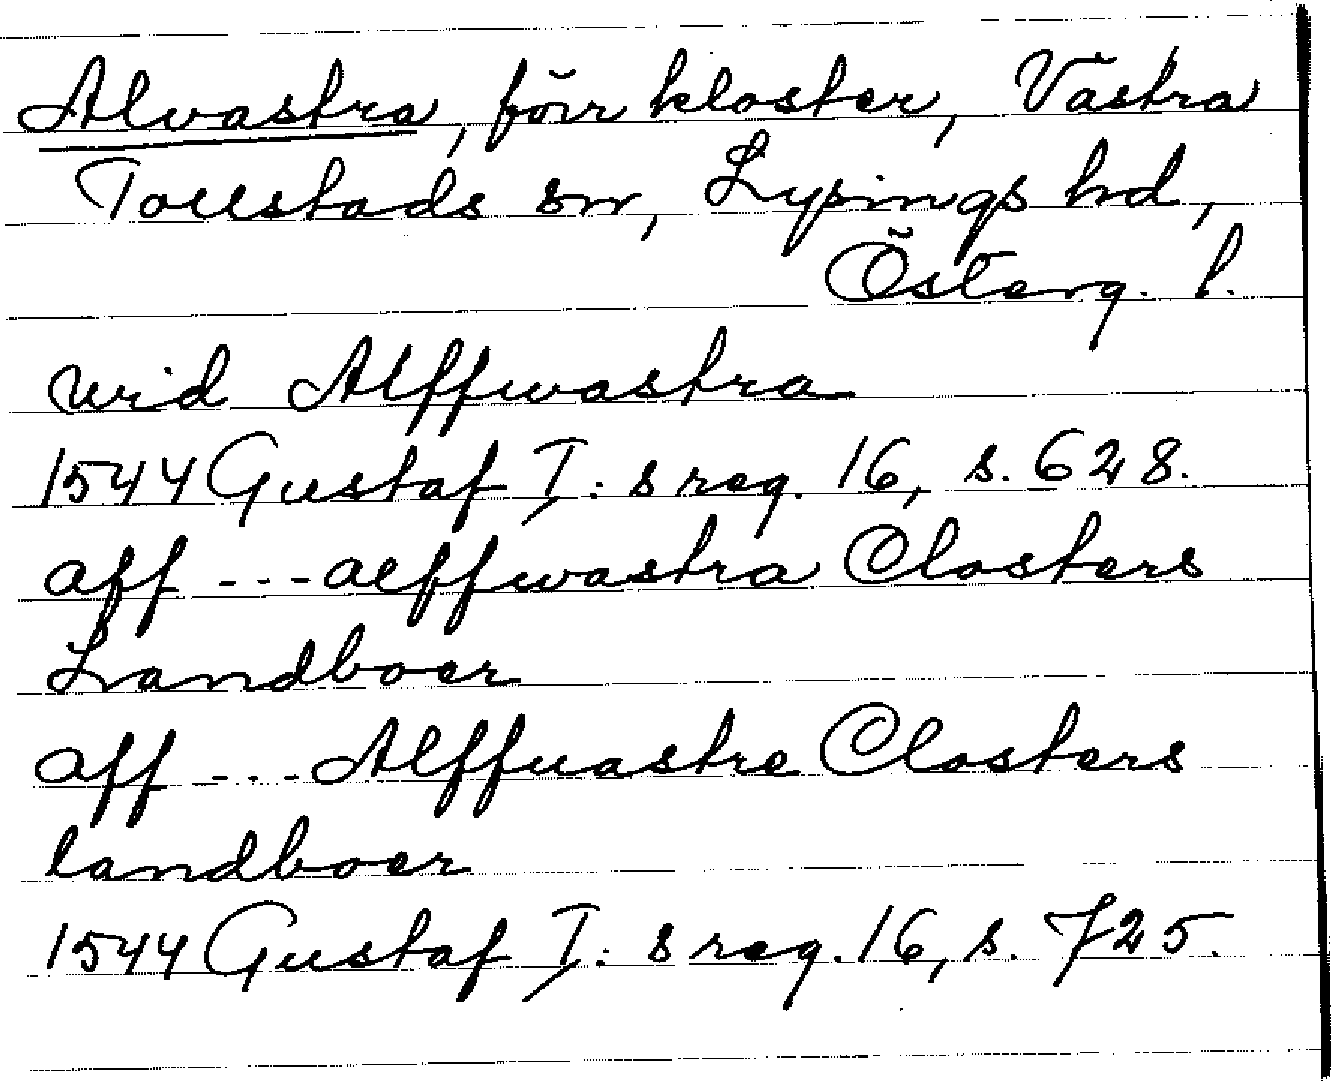 Alvastra, förr kloster, Västra
Tollstads sn, Lysings hd,
Österg. l.
wid Alffwastra
1544 Gustaf I: s reg. 16, s. 628.
aff --- alffwastra Closters
Landboer
aff --- Alffuastre Closters
landboer
1544 Gustaf I: s reg. 16, s. 725.